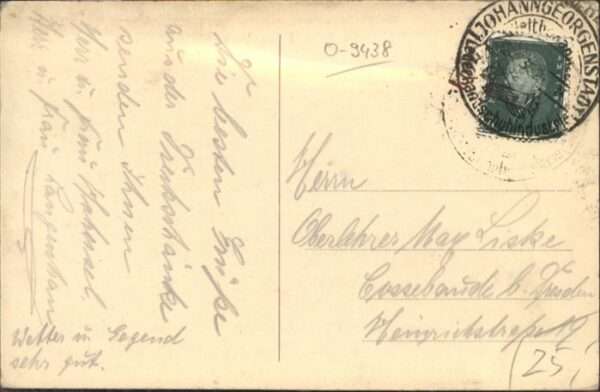 Die besten Grüße
aus der Dreckschänke
senden Ihnen
Herr u. Frau Hahnisel.
Herr u. Frau Langenhan
Wetter u. Gegend
sehr gut.
O-9438
JOHANNGEORGENSTADT
Herrn
Oberlehrer Max Liske
Cossebaude b. Dresden
Heinrichstrasse
(25,